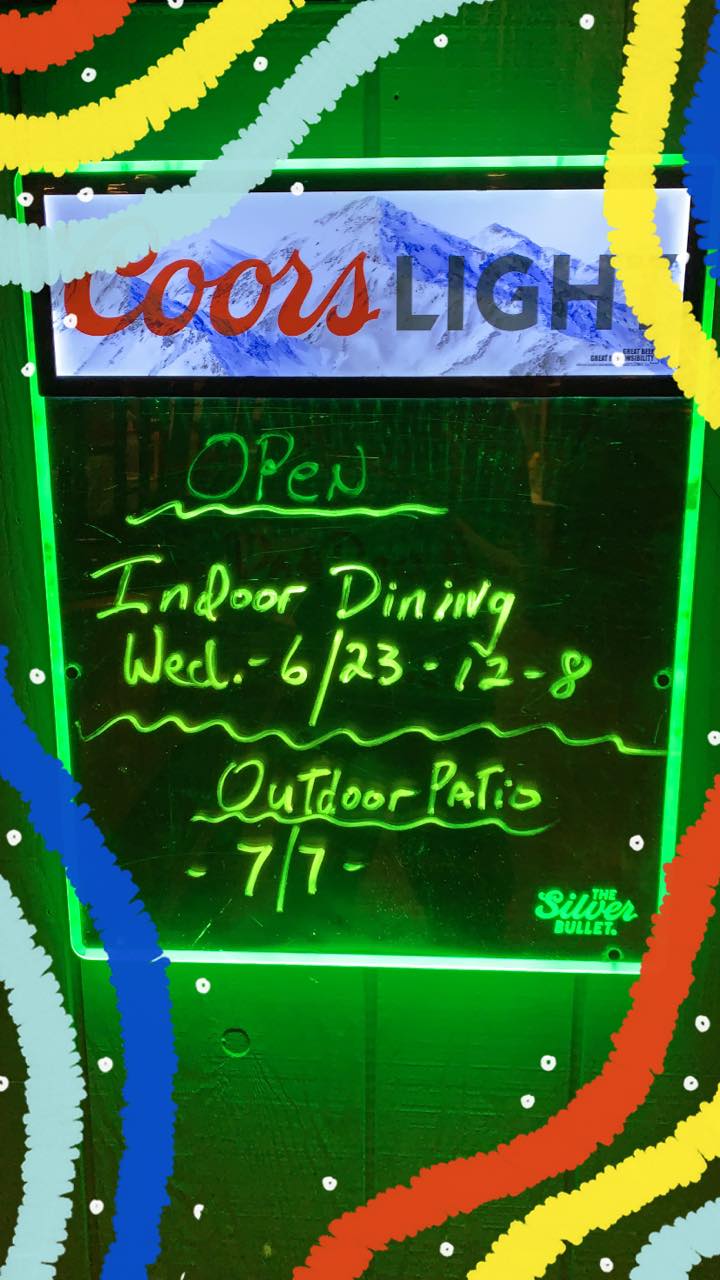 Coors LIGHT
GREAT BEER
OPeN
Indoor Dining
Wed.- 6/23 - 12-8
Outdoor PATio
- 7/7 -
THE
Silver
BULLET.